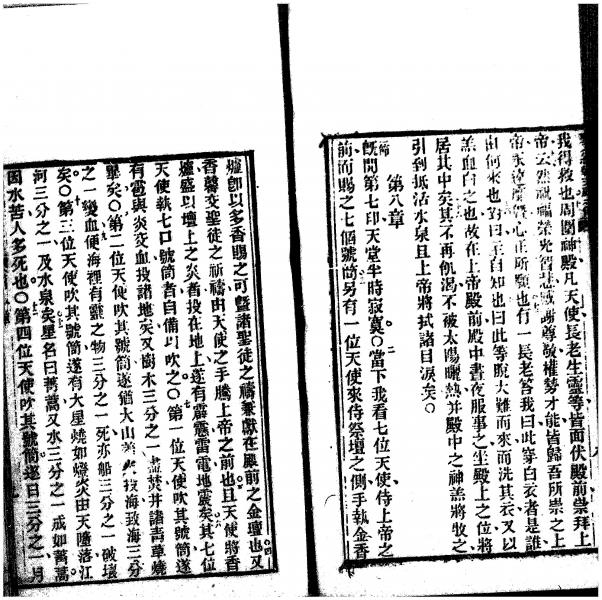 我得救也周圍神殿凡天使長老生靈等皆面伏殿前崇拜上
帝云然祝福榮光智慧感謝尊敬權勢才能皆歸吾所崇之上
帝 心正所願也有一長老答我曰此穿白衣者是誰
由何來也 曰 自知也曰此等脫大難而來而洗其衣又以
羔血白之也故在上帝殿前殿中晝夜服事之坐殿上之位將
居其中矣其不再飢渴不被太陽曬熱并殿中之神羔將牧之
引到抵沽水泉且上帝將拭諸目淚矣〇
第八章
既開第七印天堂半時寂寞〇當下我看七位天使侍上帝之
前而賜之七個號筒另有一位天使來侍祭壇之側手執金香
爐卽以多香賜之可暨諸聖徒之禱兼獻在殿前之金壇也又
香馨交聖徒之祈禱由天使之手騰上帝之前也且天使將香
爐盛以壇上之炎酋投在地上遂有霹靂雷電地震矣其七位
天使執七口號筒者自備以吹之〇第一位天使吹其號筒遂
有雹與炎交血投諸地矣又樹木三分之一盡焚并諸青草燒
畢矣〇第二位天使吹其號筒遂猶大山 投海致海三分
之一變血便海裡有靈之物三分之一死亦船三分之一破壞
矣〇第三位天使吹其號筒遂有大星燒如燈炎由天墮落江
河三分之一及水泉矣星名曰茵蔯又水三分之一成如茵蔯
因水苦人多死也〇第四位天使吹其號筒遂日三分之一月